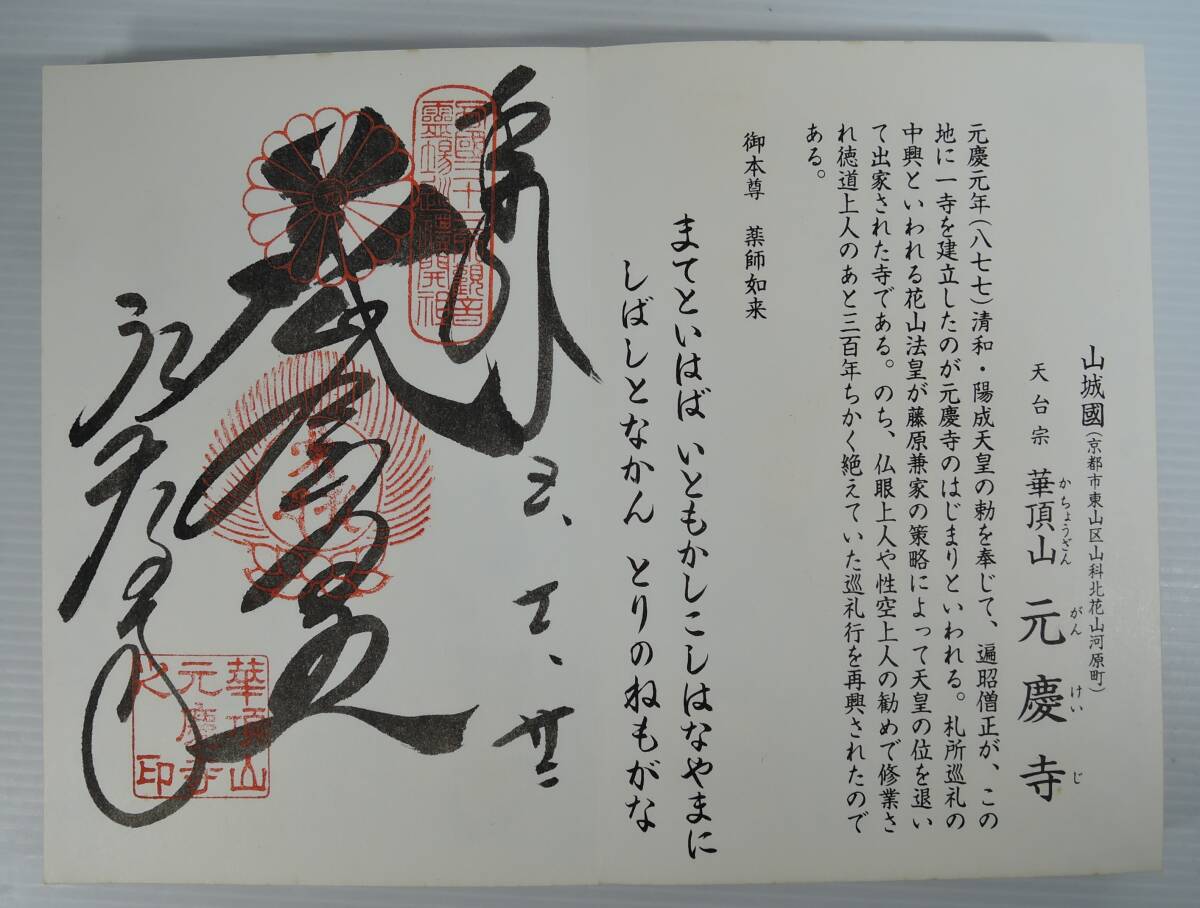 山城國(京都市東山区山科北花山河原町)
天台宗 華頂山 元慶寺
かちょうざん がんけいじ
元慶元年(八七七)清和・陽成天皇の勅を奉じて、遍昭僧正が、この
地に一寺を建立したのが元慶寺のはじまりといわれる。札所巡礼の
中興といわれる花山法皇が藤原兼家の策略によって天皇の位を退い
て出家された寺である。のち、仏眼上人や性空上人の勧めで修業さ
れ徳道上人のあと三百年ちかく絶えていた巡礼行を再興されたので
ある。
御本尊 薬師如来
まてといはば いともかしこしはなやまに
しばしとなかん とりのねもがな
奉拝
西國三十三所観音
霊場巡禮開祖
元慶寺
華頂山
元慶寺
之印